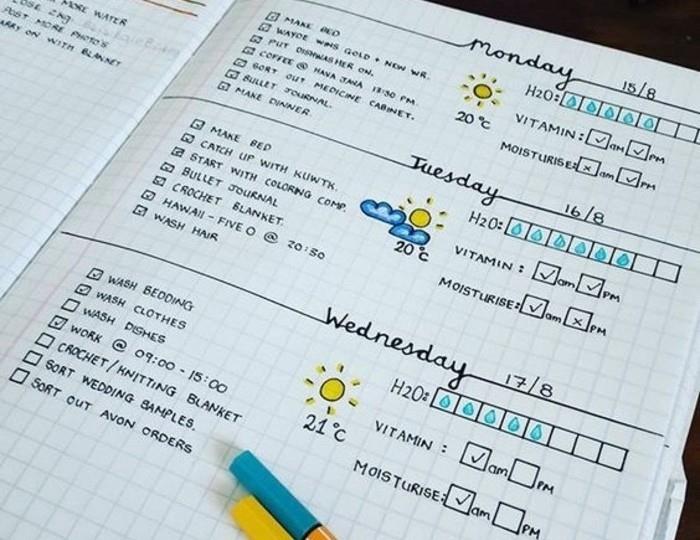 MORE WATER
POST MORE PHOTO'S
CARRY ON WITH BLANKET
monday 15/8
MAKE BED
WAYDE WINS GOLD + NEW WR.
PUT DISHWASHER ON.
COFFEE @ HAVA JAVA 13:30 PM.
SORT OUT MEDICINE CABINET.
BULLET JOURNAL.
MAKE DINNER.
20°C
H2O:
VITAMIN: am PM
MOISTURISE: am PM
Tuesday 16/8
MAKE BED
CATCH UP WITH KUWTK.
START WITH COLORING COMP.
BULLET JOURNAL
CROCHET BLANKET.
HAWAII - FIVE O @ 20:30
WASH HAIR
20°C
H2O:
VITAMIN: am PM
MOISTURISE: am PM
Wednesday 17/8
WASH BEDDING
WASH CLOTHES
WASH DISHES
WORK @ 09:00 - 15:00
CROCHET/KNITTING BLANKET
SORT WEDDING SAMPLES.
SORT OUT AVON ORDERS
21°C
H2O:
VITAMIN: am PM
MOISTURISE: am PM